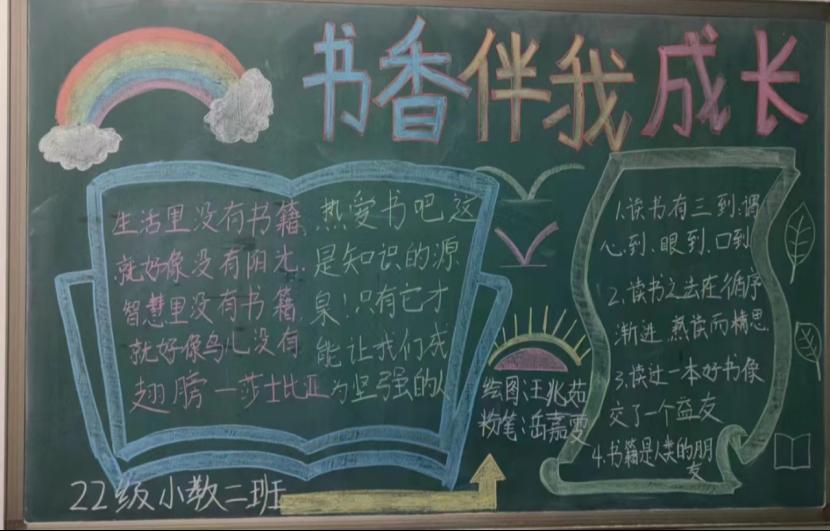 书香伴我成长
生活里没有书籍,
就好像没有阳光,
智慧里没有书籍,
就好像鸟儿没有
翅膀一莎士比亚
热爱书吧这
是知识的源
泉!只有它才
能让我们成
为坚强的人
绘图:汪兆茹
粉笔:岳嘉雯
1.读书有三到:谓
心到、眼到、口到
2.读书之法在循序
渐进,熟读而精思
3.读过一本好书像
交了一个益友
4.书籍是人类的朋
友
22级小教二班